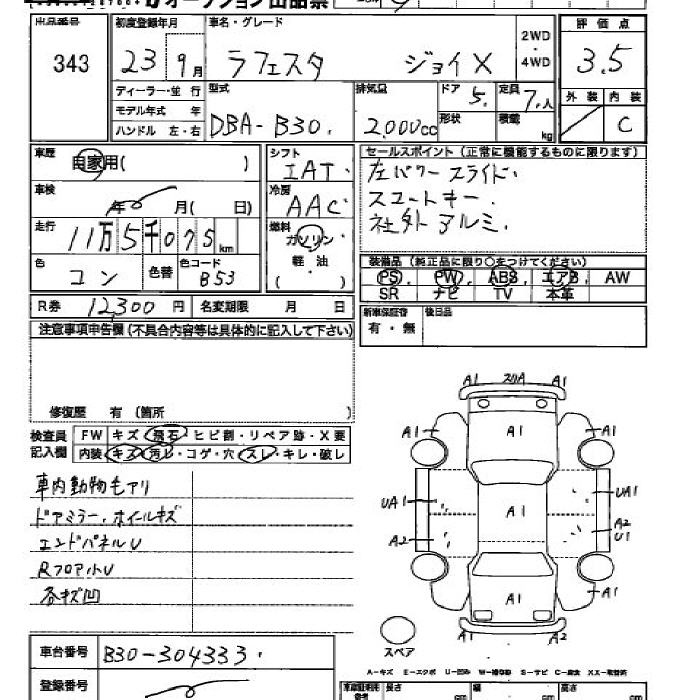 オークション出品票
出品番号 初度登録年月 車名・グレード 2WD・4WD 評価点
343 23 9月 ラフェスタ ジョイX 3.5
ディーラー・並行 型式 排気量 ドア 5. 定員 7.人 外装 内装
モデル年式 年 DBA-B30. 2000cc 形状 積載 kg C
ハンドル 左・右
車歴 自家用( ) シフト IAT. セールスポイント(正常に機能するものに限ります)
車検 年 月( 日) 冷房 AAC 左パワースライド.
スコートキー.
社外アルミ.
走行 11万5千075km 燃料 ガソリン・軽油( )
色 コン 色替 色コード B53
装備品(純正品に限り○をつけてください)
PS PW ABS エアB AW
SR ナビ TV 本革
R券 12,300円 名変期限 月 日
新車保証書 有・無 後日品
注意事項申告欄(不具合内容等は具体的に記入して下さい)
修復歴 有(箇所 )
検査員記入欄 FW キズ・飛石・ヒビ割・リペア跡・X要
内装 キズ・汚レ・コゲ・穴・スレ・キレ・破レ
車内動物毛アリ
ドアミラー.ホイールキズ
エンドパネルU
RフロアハトU
各キズ凹
A1 スリA A1
A1 A1 A1
UA1 A1 UA1
A2 A2 U1
A1 A1 A1
A1 A2
スペア
車台番号 B30-304333.
登録番号
A-キズ E-エクボ U-凹み W-補修跡 S-サビ C-腐食 XX-取替済
長さ cm 幅 cm 高さ cm